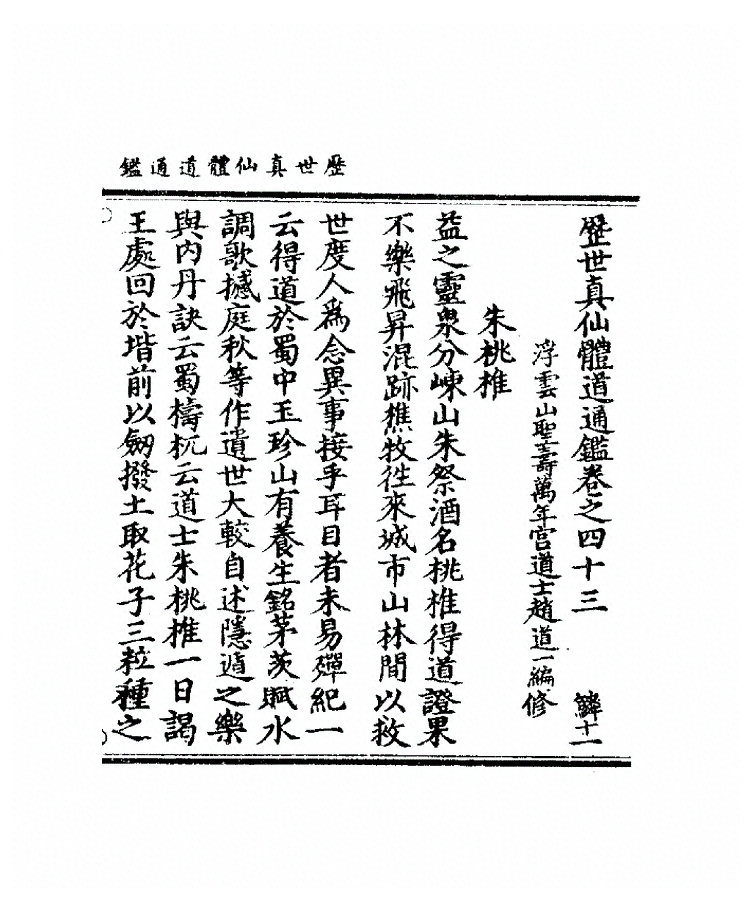 歷世真仙體道通鑑
歷世真仙體道通鑑卷之四十三 鱗十一
浮雲山聖壽萬年宮道士趙道一編修
朱桃椎
益之靈泉分崠山朱祭酒名桃椎得道證果
不樂飛昇混跡樵牧往來城市山林間以救
世度人爲念異事接乎耳目者未易殫紀一
云得道於蜀中玉珍山有養生銘茅茨賦水
調歌撼庭秋等作遺世大較自述隱遁之樂
與內丹訣云蜀檮杌云道士朱桃椎一日謁
王處回於堦前以劒撥土取花子三粒種之